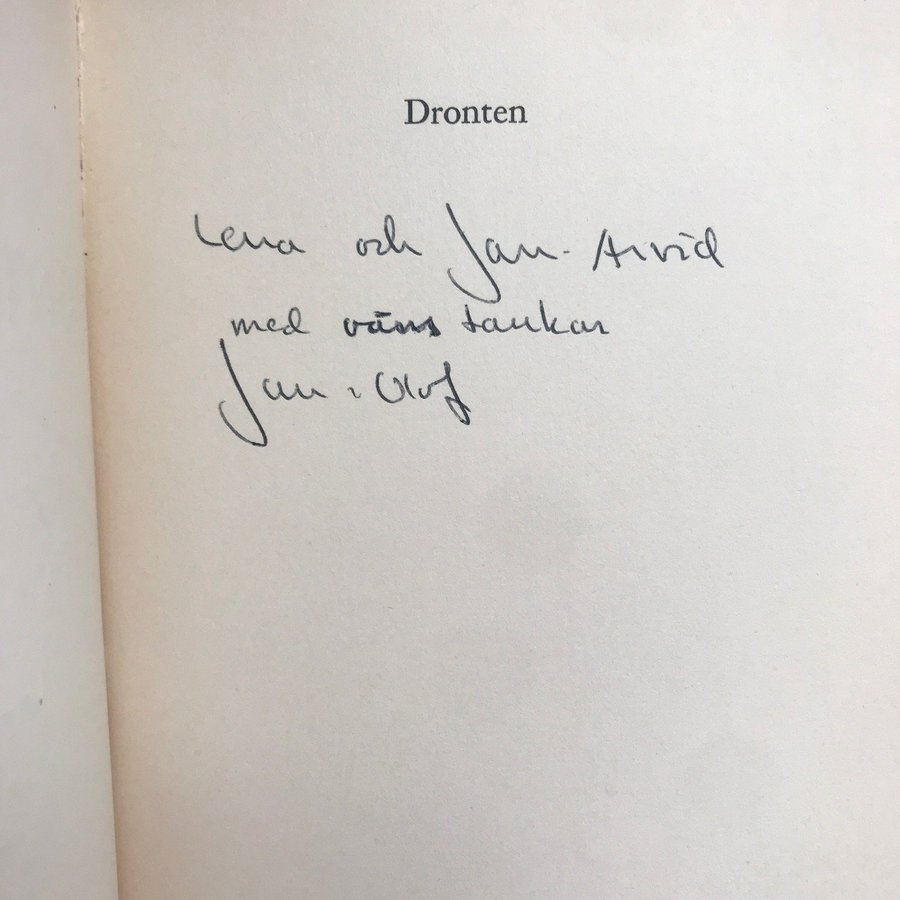 Dronten
Lena och Jan-Arvid
med väns tankar
Jan-Olof